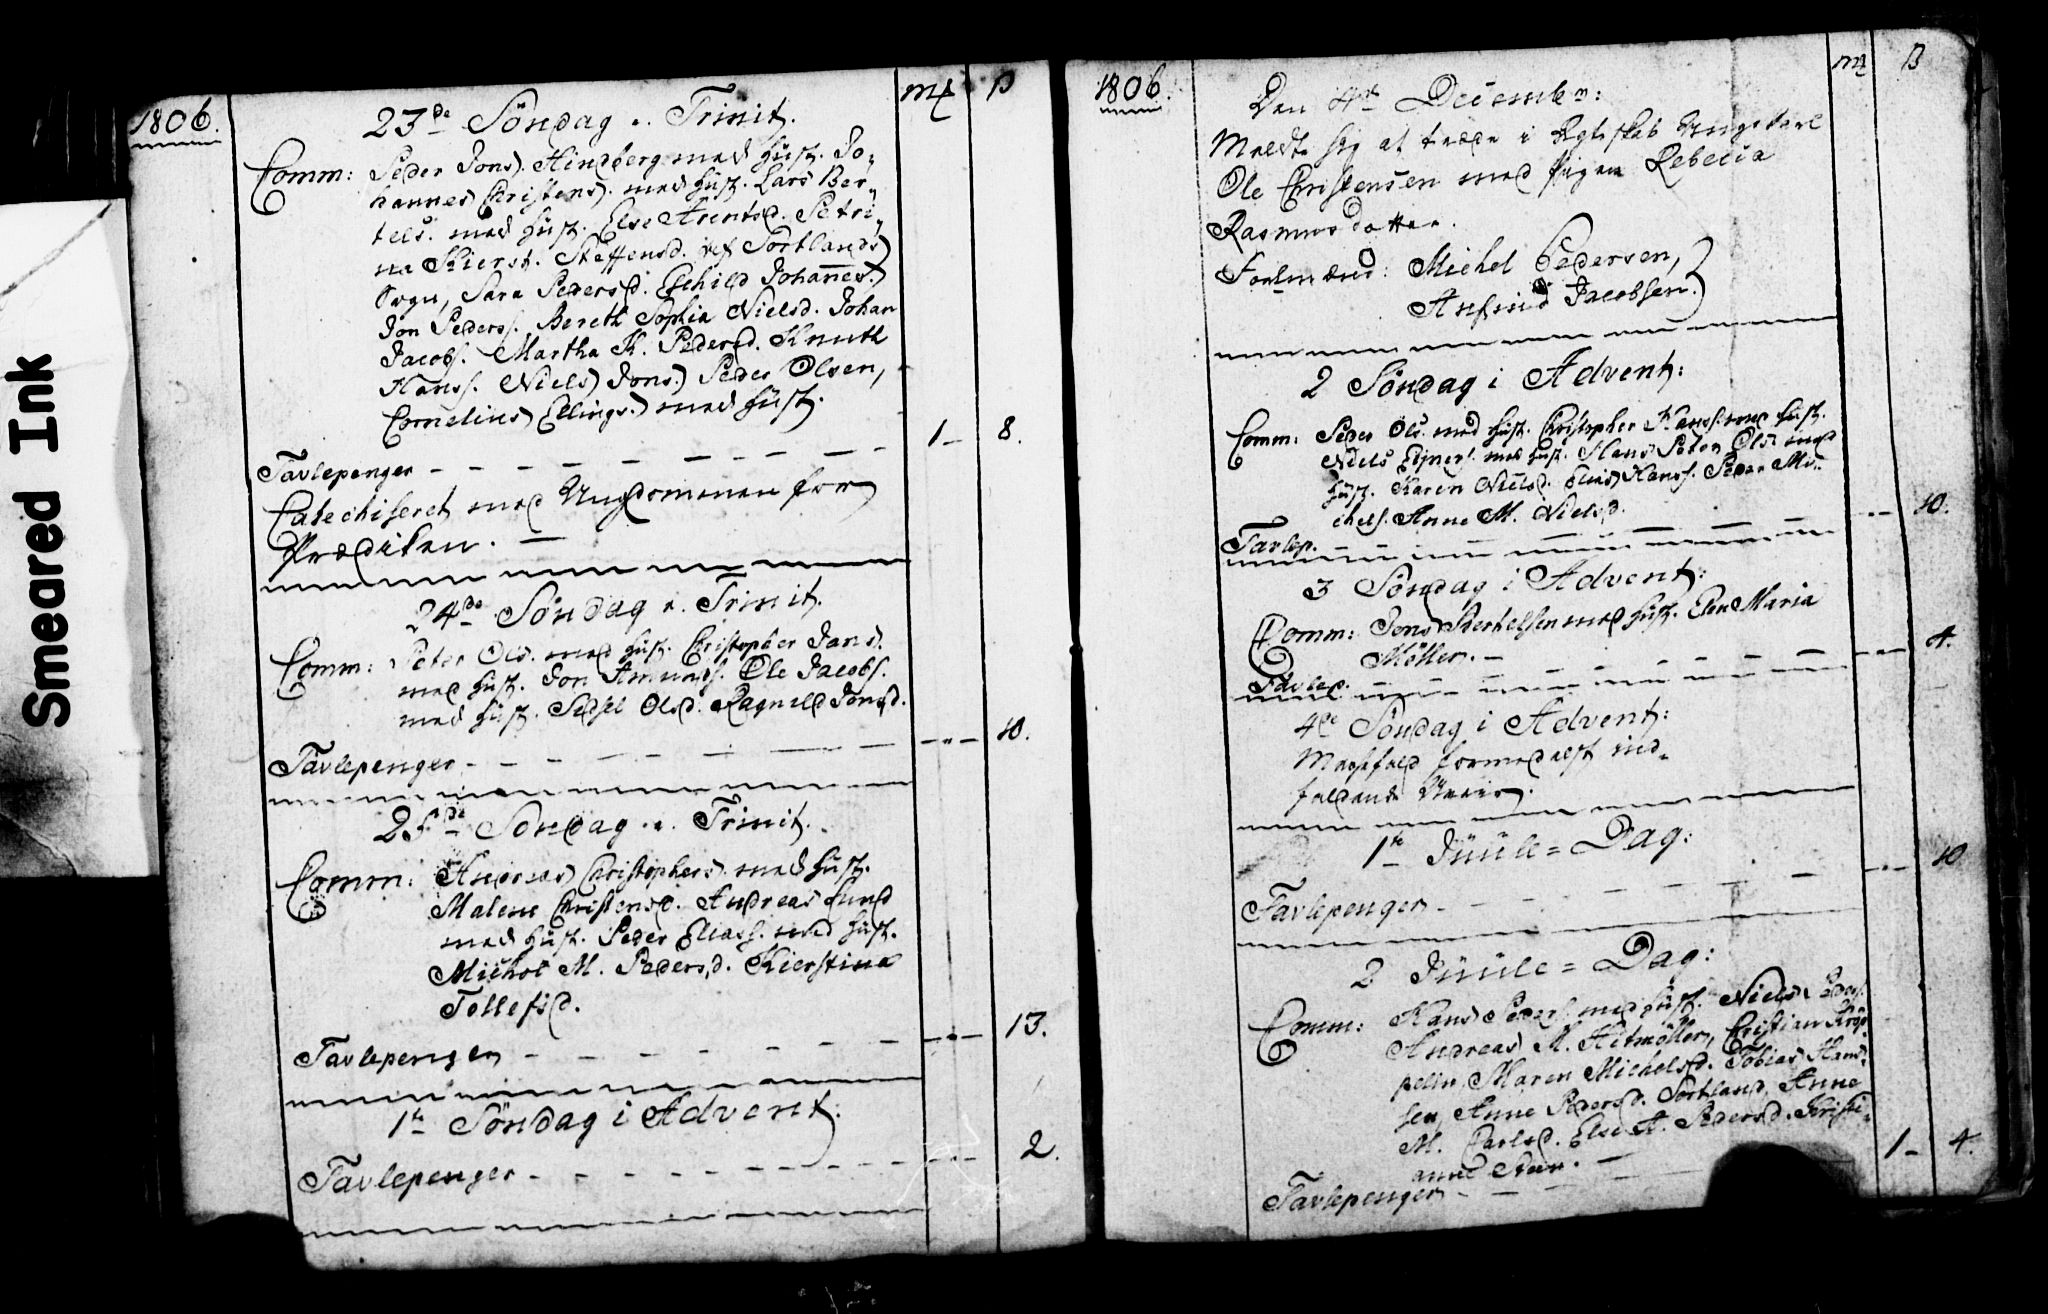 Smeared Ink
1806.
mk ß
23de Söndag a. Trinit.
Comm: Peder Jons. Hindberg med Hust. Jo-
hannes Christens. med Hust. Lars Ber-
tels. med Hust. Else Arentsd. Petri-
na Kierst. Steffensd. af Sortlands
Sogn, Sara Pedersd. Eschild Johannes.
Jon Peders. Bereth Sophia Nielsd. Johan
Jacobs. Martha K. Pedersd. Knuth
Hans. Niels Jons. Peder Olsen,
Cornelius Ellings. med Hust.
Tavlepenger - - - - - - - 1 - 8.
Catechiseret med Ungdommen for
Prædiken. -
24de Söndag a. Trinit.
Comm: Peter Ols. med Hust. Christopher Jans.
med Hust. Jon Amunds. Ole Jacobs.
med Hust. Sidsel Olsd. Ragnild Jonsd.
Tavlepenger - - - - - - - 10.
25de Söndag a. Trinit.
Comm: Andreas Christophers. med Hust.
Malene Christensd. Andreas Lund
med Hust. Peder Elias. med Hust.
Michol M. Pedersd. Kierstina
Tollefsd.
Tavlepenger - - - - - - - 13.
1te Söndag i Advent:
Tavlepenger - - - - - - - 2.
1806.
mk ß
Den 4de Decembr:
Meldte sig at træde i Egteskab Ungekarl
Ole Christensen med Pigen Rebecca
Rasmusdatter.
Forlovere: Michel Pedersen,
Anfind Jacobsen.
2 Söndag i Advent:
Comm: Peder Ols. med Hust. Christopher Hans. med Hust.
Niels Ejners. med Hust. Hans Peter Ols. med
Hust. Karen Nielsd. Elias Hans. Peder Mi-
chels. Anne M. Nielsd.
Tavlep. - - - 10.
3 Söndag i Advent:
Comm: Jens Berthelsen med Hust. Elen Maria
Möller. -
Tavlep. - - - 4.
4de Söndag i Advent:
Messefald formedelst ind-
faldende Uveir.
1te Juule=Dag:
Tavlepenger - - - - - - - 10
2 Juule=Dag:
Comm: Hans Peders. med Hust. Niels Peders.
Andreas M. Hitmöller, Christian Kröp-
pelin, Maren Michelsd. Tobias Hans-
sen, Anne Pedersd. Sortland, Anne
M. Carlsd. Else A. Pedersd. Christi-
anne Steen. -
Tavlepenger - - - 1 - 4.